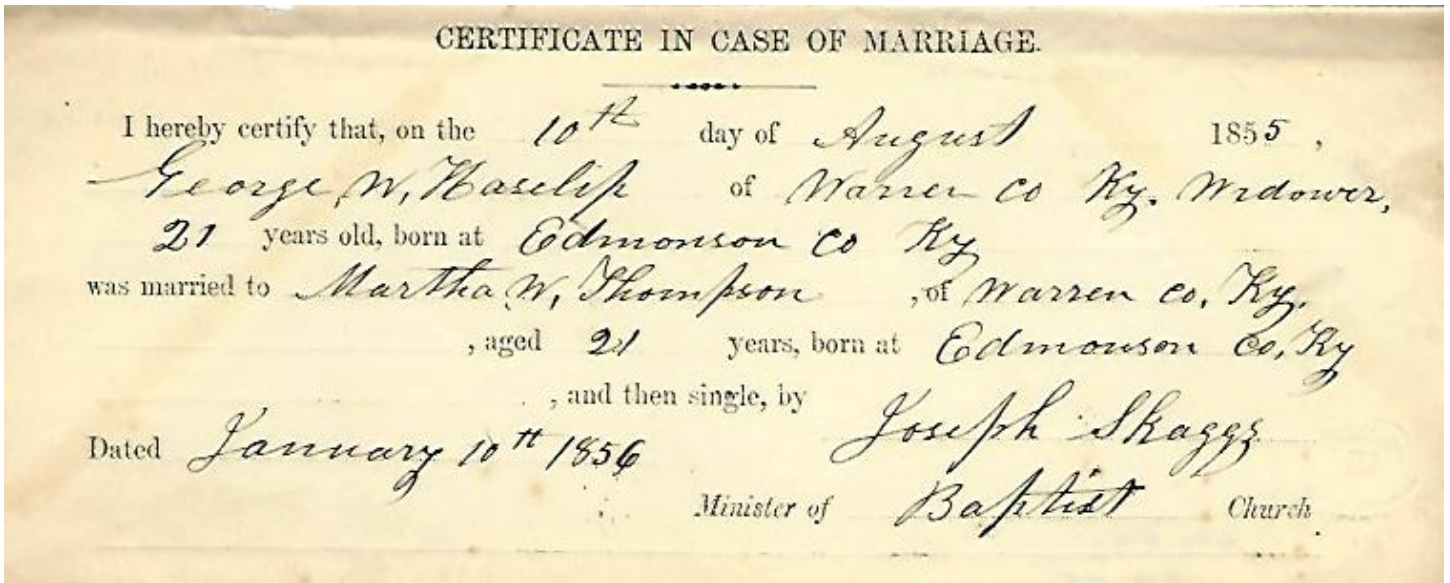 CERTIFICATE IN CASE OF MARRIAGE.
I hereby certify that, on the 10th day of August 1855,
George W, Haselip of Warren Co Ky. Widower,
21 years old, born at Edmonson Co Ky
was married to Martha W, Thompson, of Warren Co, Ky.
, aged 21 years, born at Edmonson Co, Ky
, and then single, by
Joseph Skaggs
Dated January 10th 1856
Minister of Baptist Church